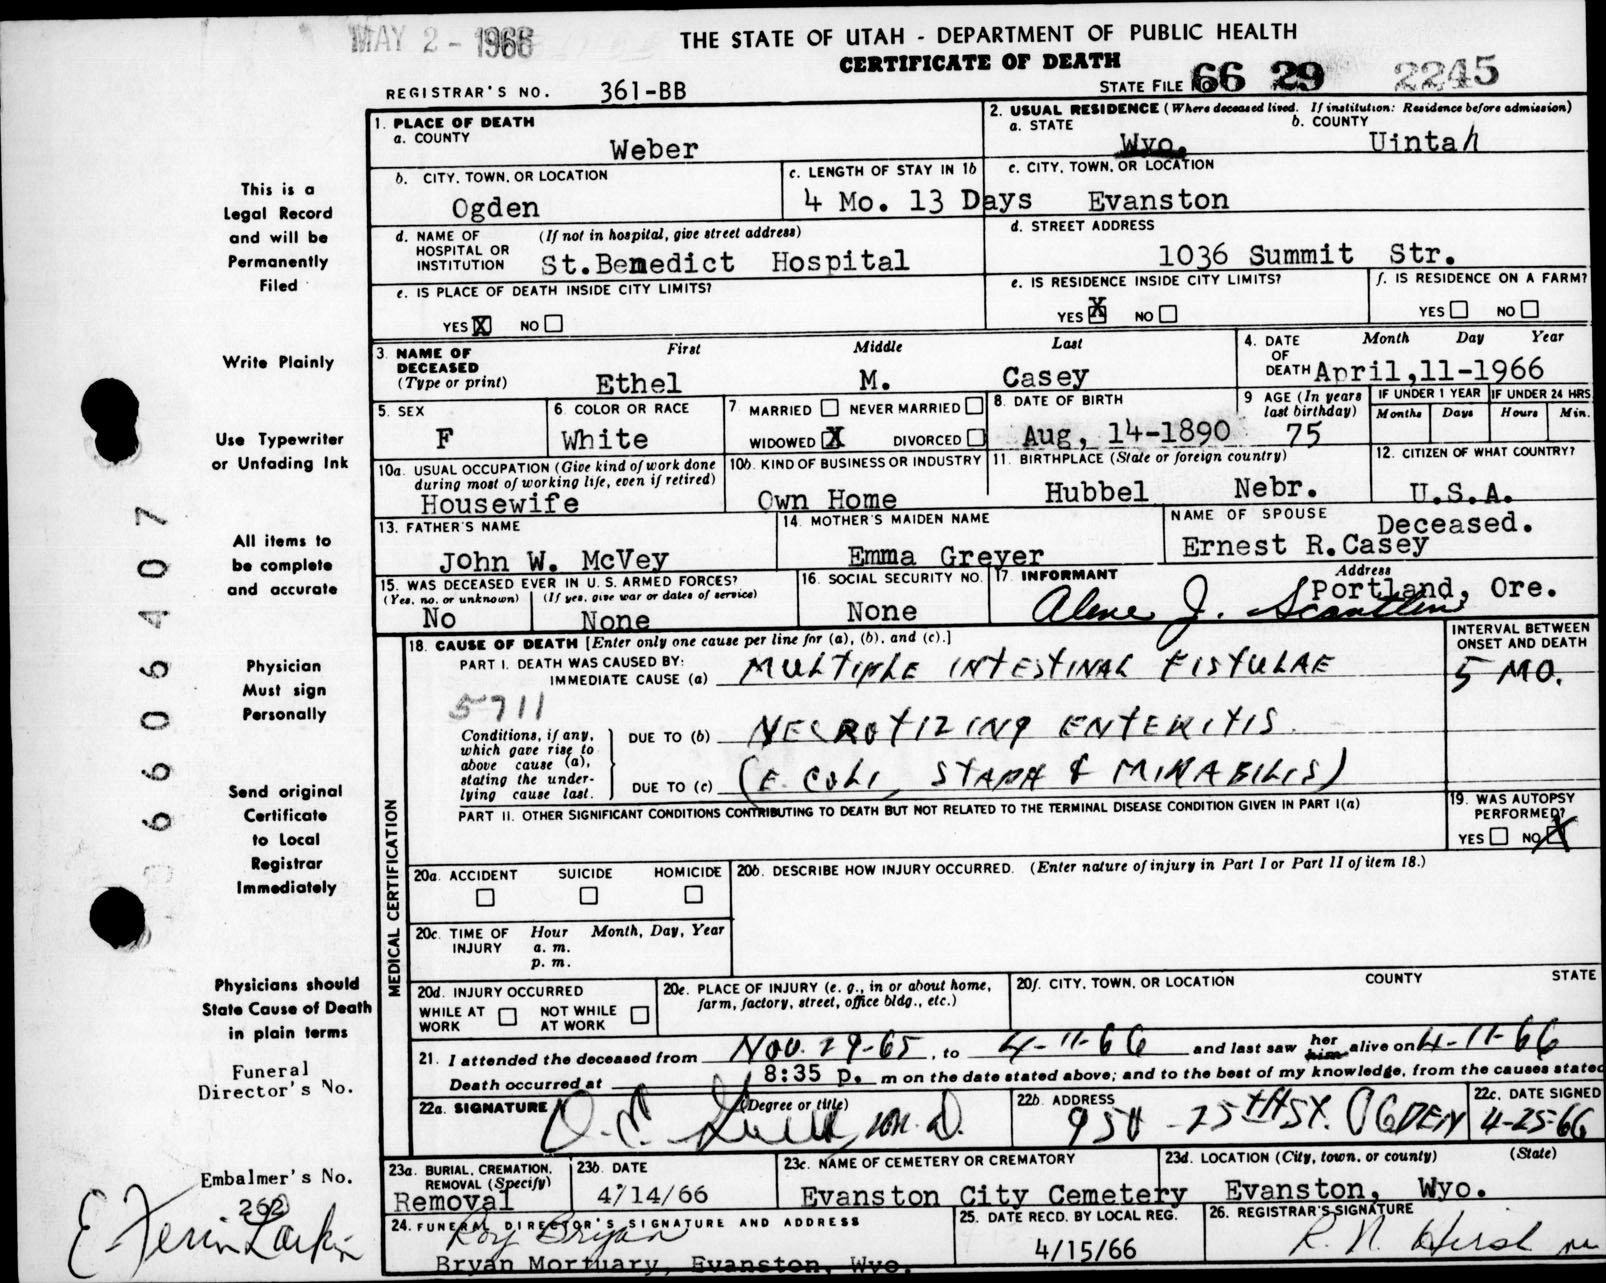 MAY 2 - 1966
THE STATE OF UTAH - DEPARTMENT OF PUBLIC HEALTH
CERTIFICATE OF DEATH
REGISTRAR'S NO. 361-BB
STATE FILE NO. 66 29 2245
This is a
Legal Record
and will be
Permanently
Filed
Write Plainly
Use Typewriter
or Unfading Ink
All items to
be complete
and accurate
Physician
Must sign
Personally
Send original
Certificate
to Local
Registrar
Immediately
Physicians should
State Cause of Death
in plain terms
Funeral
Director's No.
Embalmer's No.
262
E. Ferin Larkin
66066407
1. PLACE OF DEATH
a. COUNTY
Weber
2. USUAL RESIDENCE (Where deceased lived. If institution: Residence before admission)
a. STATE b. COUNTY
Wyo. Uintah
b. CITY, TOWN, OR LOCATION
Ogden
c. LENGTH OF STAY IN 1b
4 Mo. 13 Days
c. CITY, TOWN, OR LOCATION
Evanston
d. NAME OF HOSPITAL OR INSTITUTION (If not in hospital, give street address)
St.Benedict Hospital
d. STREET ADDRESS
1036 Summit Str.
e. IS PLACE OF DEATH INSIDE CITY LIMITS?
YES X NO
e. IS RESIDENCE INSIDE CITY LIMITS?
YES X NO
f. IS RESIDENCE ON A FARM?
YES NO
3. NAME OF DECEASED (Type or print)
First Middle Last
Ethel M. Casey
4. DATE OF DEATH Month Day Year
April,11-1966
5. SEX
F
6. COLOR OR RACE
White
7. MARRIED NEVER MARRIED
WIDOWED X DIVORCED
8. DATE OF BIRTH
Aug, 14-1890
9 AGE (In years last birthday)
75
IF UNDER 1 YEAR
Months Days
IF UNDER 24 HRS.
Hours Min.
10a. USUAL OCCUPATION (Give kind of work done during most of working life, even if retired)
Housewife
10b. KIND OF BUSINESS OR INDUSTRY
Own Home
11. BIRTHPLACE (State or foreign country)
Hubbel Nebr.
12. CITIZEN OF WHAT COUNTRY?
U.S.A.
13. FATHER'S NAME
John W. McVey
14. MOTHER'S MAIDEN NAME
Emma Greyer
NAME OF SPOUSE Deceased.
Ernest R.Casey
15. WAS DECEASED EVER IN U. S. ARMED FORCES?
(Yes, no, or unknown) (If yes, give war or dates of service)
No None
16. SOCIAL SECURITY NO.
None
17. INFORMANT Address
Portland, Ore.
Alene J. Scantlin
18. CAUSE OF DEATH [Enter only one cause per line for (a), (b), and (c).]
INTERVAL BETWEEN ONSET AND DEATH
PART I. DEATH WAS CAUSED BY:
IMMEDIATE CAUSE (a) MULTIPLE INTESTINAL FISTULAE
5 MO.
5711
Conditions, if any, which gave rise to above cause (a), stating the under-lying cause last.
DUE TO (b) NECROTIZING ENTERITIS
DUE TO (c) (E. COLI, STAPH & MIRABILIS)
PART II. OTHER SIGNIFICANT CONDITIONS CONTRIBUTING TO DEATH BUT NOT RELATED TO THE TERMINAL DISEASE CONDITION GIVEN IN PART I(a)
19. WAS AUTOPSY PERFORMED?
YES NO X
MEDICAL CERTIFICATION
20a. ACCIDENT SUICIDE HOMICIDE
20b. DESCRIBE HOW INJURY OCCURRED. (Enter nature of injury in Part I or Part II of item 18.)
20c. TIME OF INJURY Hour Month, Day, Year
a. m.
p. m.
20d. INJURY OCCURRED
WHILE AT WORK NOT WHILE AT WORK
20e. PLACE OF INJURY (e. g., in or about home, farm, factory, street, office bldg., etc.)
20f. CITY, TOWN, OR LOCATION COUNTY STATE
21. I attended the deceased from Nov. 29-65, to 4-11-66 and last saw her him alive on 4-11-66
Death occurred at 8:35 p. m on the date stated above; and to the best of my knowledge, from the causes stated
22a. SIGNATURE (Degree or title)
M.D.
22b. ADDRESS
950 - 25th ST. OGDEN
22c. DATE SIGNED
4-25-66
23a. BURIAL, CREMATION, REMOVAL (Specify)
Removal
23b. DATE
4/14/66
23c. NAME OF CEMETERY OR CREMATORY
Evanston City Cemetery
23d. LOCATION (City, town, or county) (State)
Evanston, Wyo.
24. FUNERAL DIRECTOR'S SIGNATURE AND ADDRESS
Roy Bryan
Bryan Mortuary, Evanston, Wyo.
25. DATE RECD. BY LOCAL REG.
4/15/66
26. REGISTRAR'S SIGNATURE
R. N. Hirst